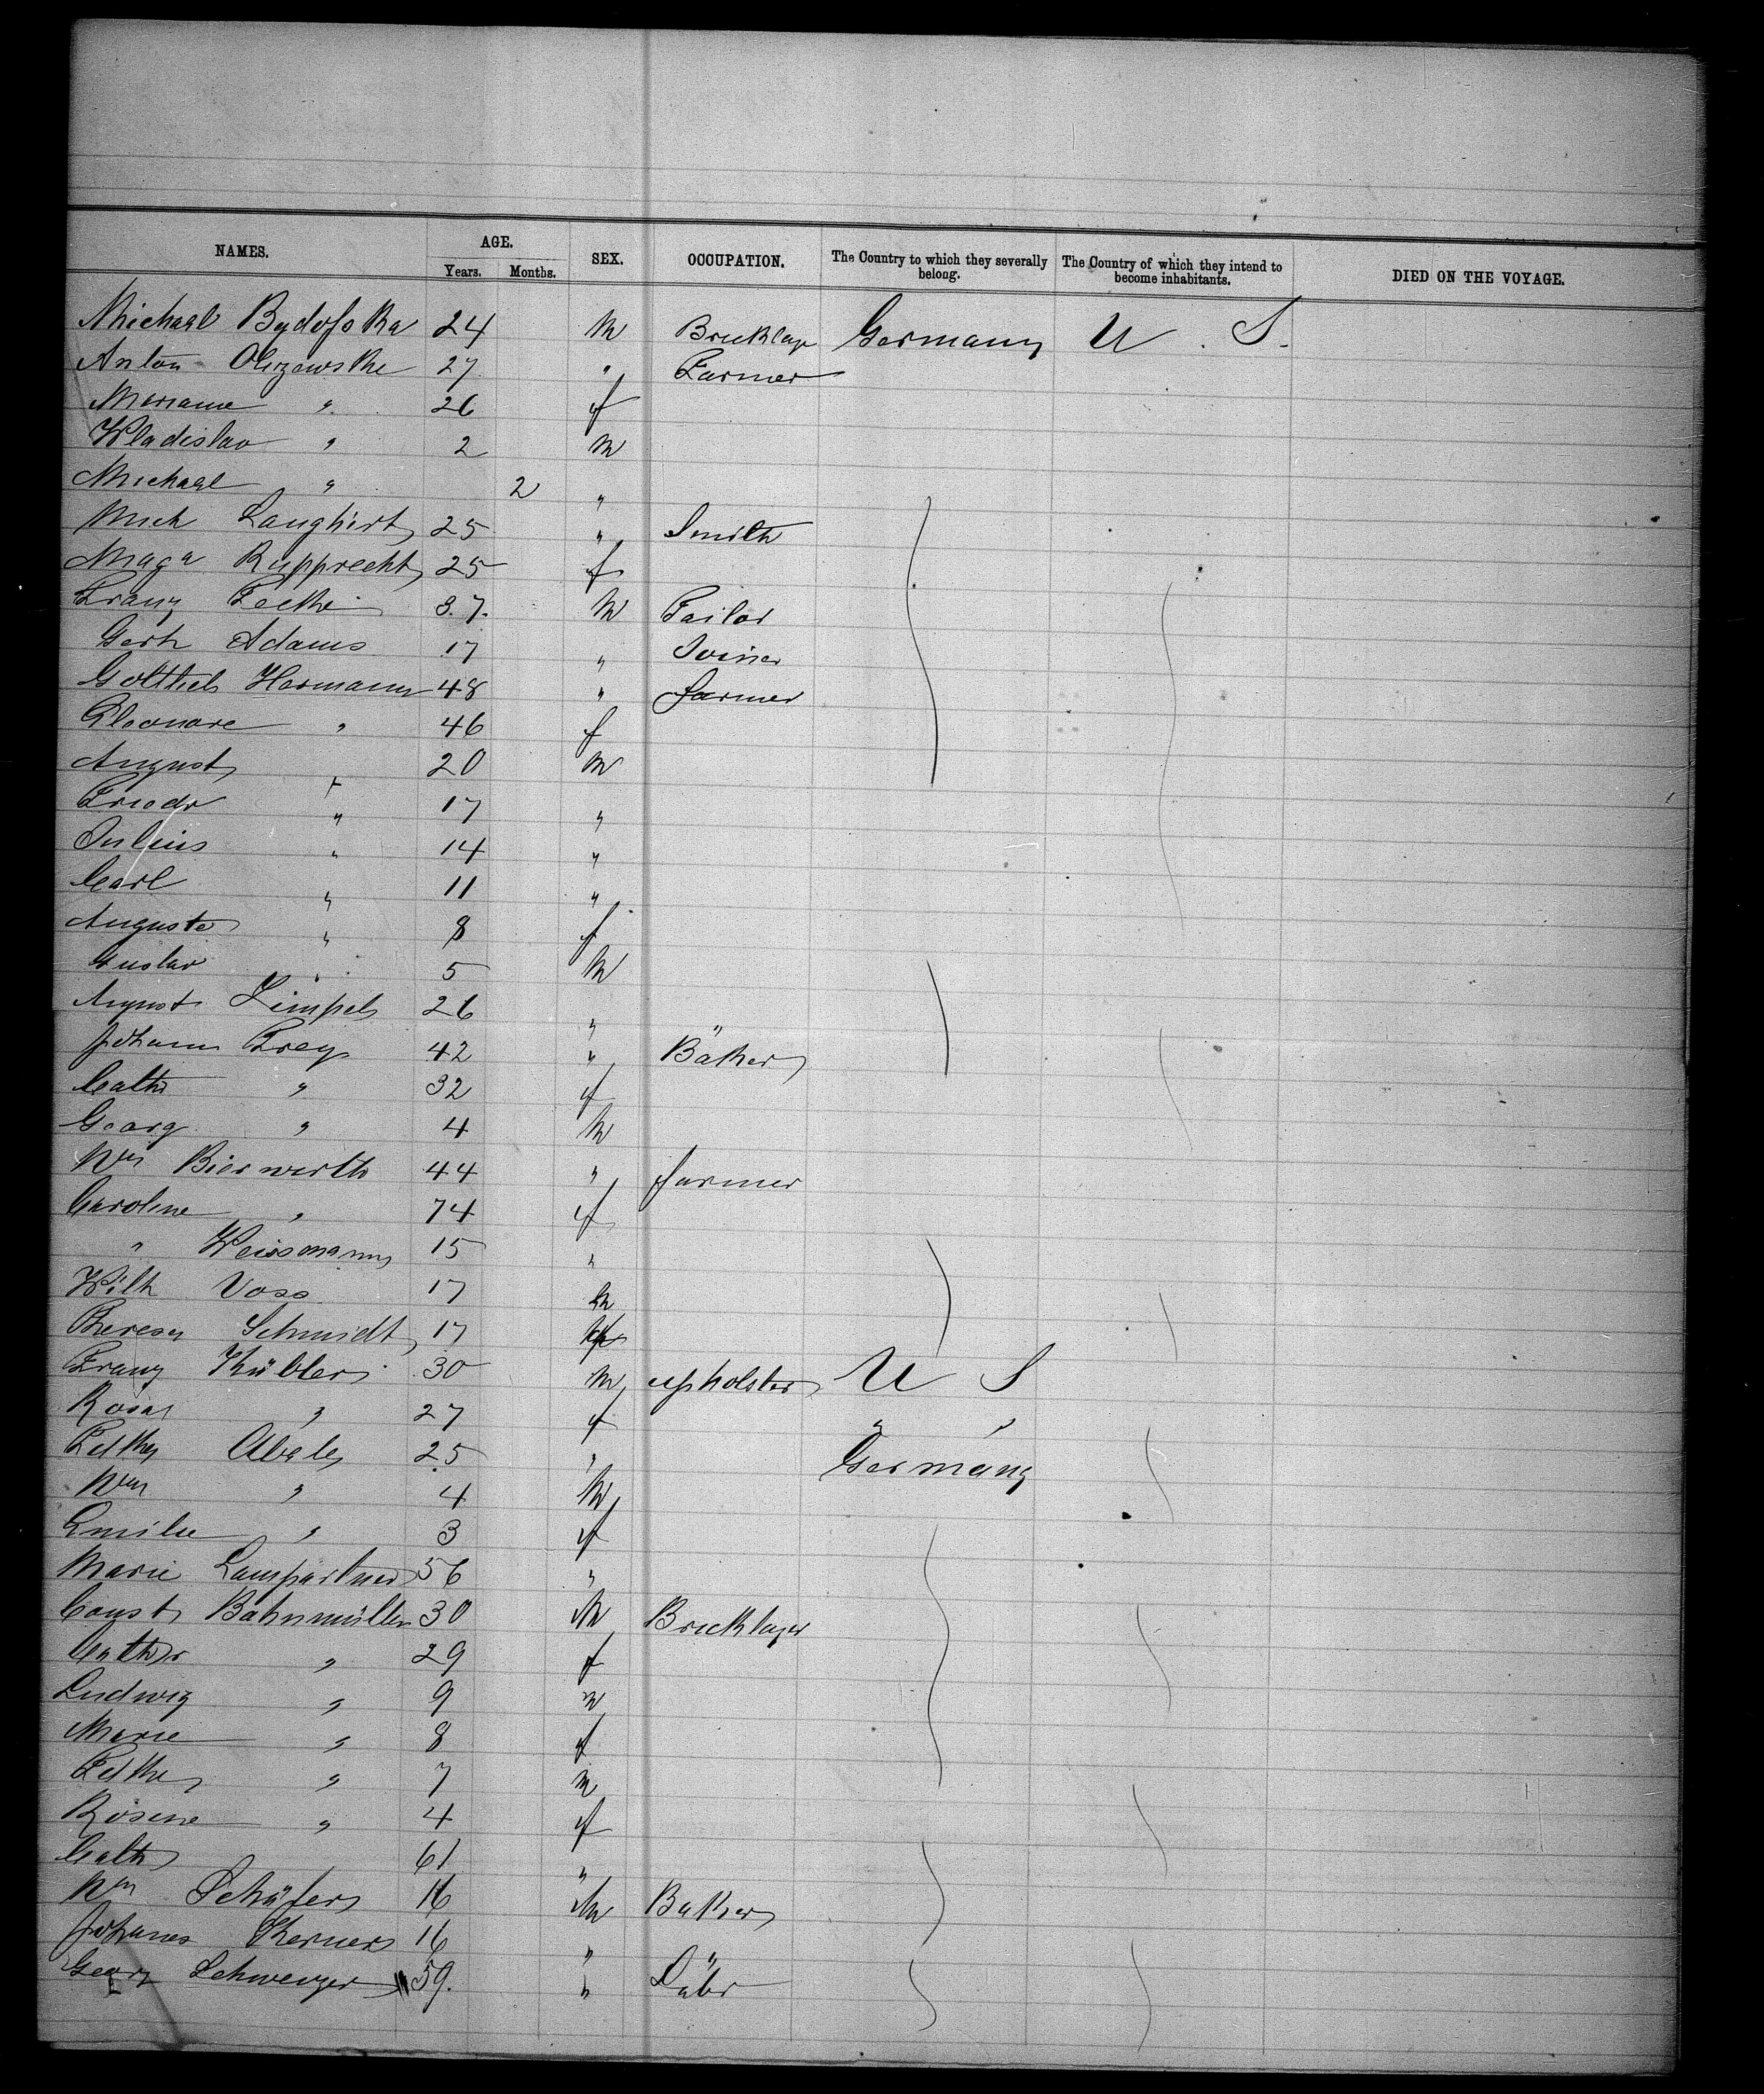 NAMES. AGE. SEX. OCCUPATION. The Country to which they severally belong. The Country of which they intend to become inhabitants. DIED ON THE VOYAGE.
Years. Months.
Michael Bydofska 24 M Bricklayr Germany U. S.
Anton Olszewske 27 " Farmer
Marianne " 26 f
Wladislav " 2 M
Michael " 2 "
Mich 25 " Smith
Maga Rupprecht 25 f
Franz 37. M Tailor
Gerh Adams 17 " Joiner
Gottlieb Hermann 48 " farmer
Eleonore " 46 f
August " 20 M
Friedr " 17 "
Julius " 14 "
Carl " 11 "
Auguste " 8 f
Gustav " 5 M
August Zimpel 26 "
Johann Frey 42 " Bäker
Cath " 32 f
Georg " 4 M
Wm Bierwirth 44 " farmer
Caroline " 74 f
" Weissmann 15 "
Wilh Voss 17 M
Theresa Schmidt 17 f
Franz Kübler 30 M upholster U S
Rosa " 27 f " "
Abele 25 " Germany
Wm " 4 M
Emilie " 3 f
Marie Lampartner 56 "
Const Bahnmüller 30 M Bricklayer
Cathr " 29 f
Ludwig " 9 m
Marie " 8 f
" 7 m
Rosine " 4 f
Cath 61 "
Wm Schäfer 16 M Baker
Johannes Kerner 16 " "
Georg Schwenger 59. " Labr